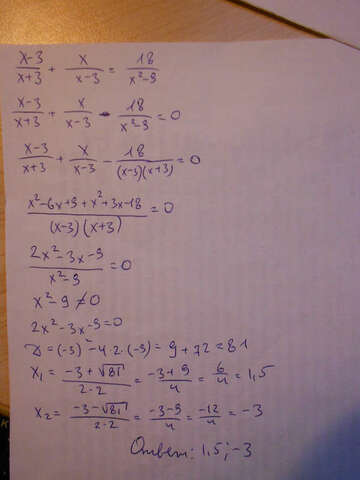 (x-3)/(x+3) + x/(x-3) = 18/(x²-9)
(x-3)/(x+3) + x/(x-3) - 18/(x²-9) = 0
(x-3)/(x+3) + x/(x-3) - 18/((x-3)(x+3)) = 0
(x²-6x+9+x²+3x-18)/((x-3)(x+3)) = 0
(2x²-3x-9)/(x²-9) = 0
x²-9≠0
2x²-3x-9=0
D=(-3)²-4·2·(-9)=9+72=81
x₁ = (-3+√81)/(2·2) = (-3+9)/4 = 6/4 = 1,5
x₂ = (-3-√81)/(2·2) = (-3-9)/4 = -12/4 = -3
Ответ: 1,5; -3